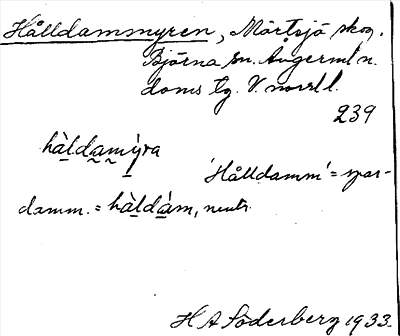 Hålldammyren, Mårtsjö skog.
Björna sn. Ångerml n.
doms tg. V. norrl l.
239
hàldamýra
'Hålldamm' = spar-
damm. = hàldàm, neutr.
H A Söderberg 1933.